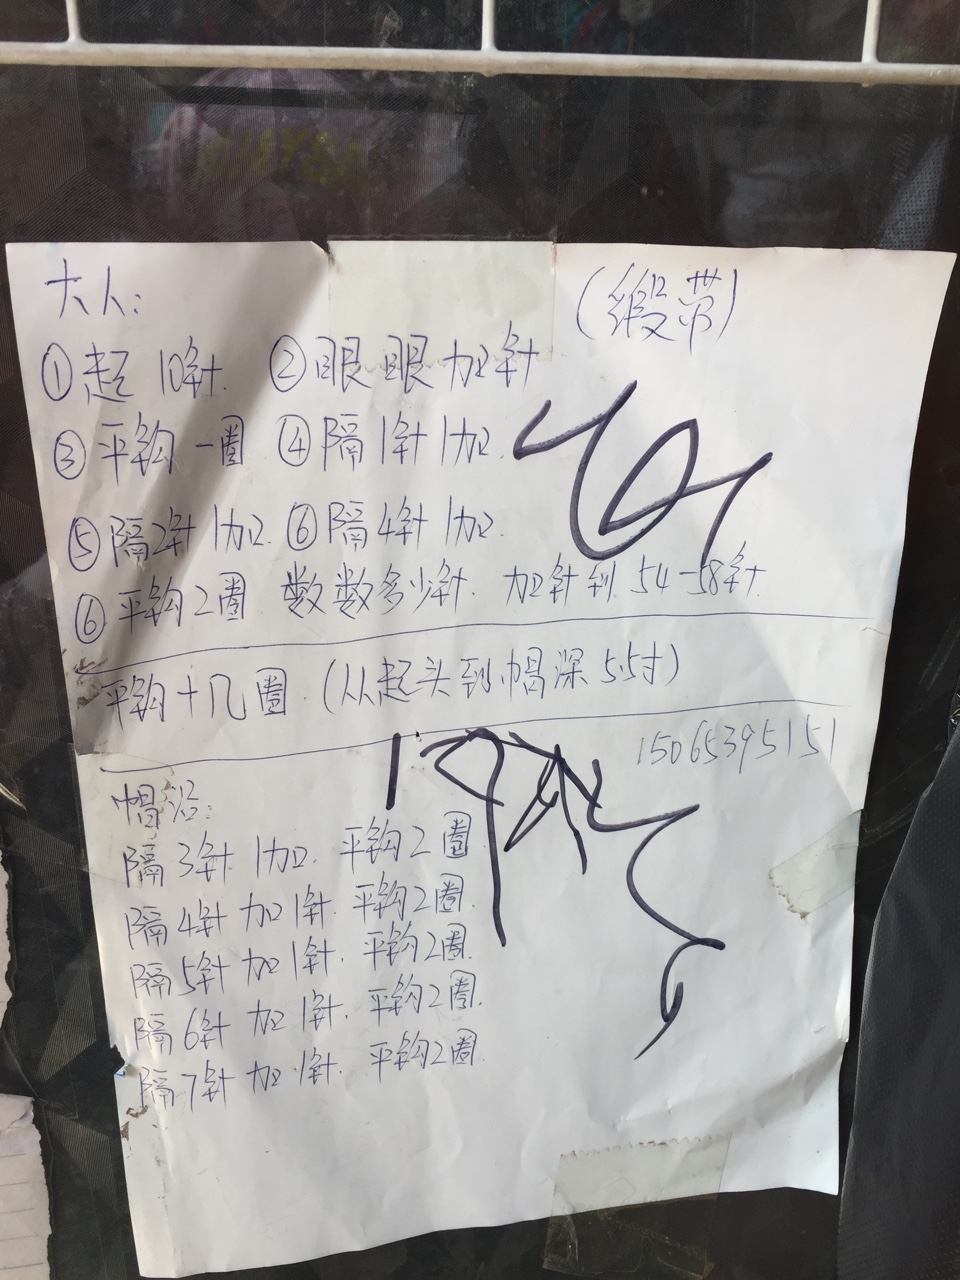 大人: (缎带)
①起 10针. ②眼眼加针
③平钩一圈 ④隔1针1加.
⑤隔2针1加. ⑥隔4针1加.
⑥平钩2圈 数数多少针. 加针到54-58针.
平钩十几圈.(从起头到帽深5.5寸)
15065395151
帽沿:
隔3针1加. 平钩2圈
隔4针加1针. 平钩2圈.
隔5针加1针. 平钩2圈.
隔6针加1针. 平钩2圈.
隔7针加1针. 平钩2圈.